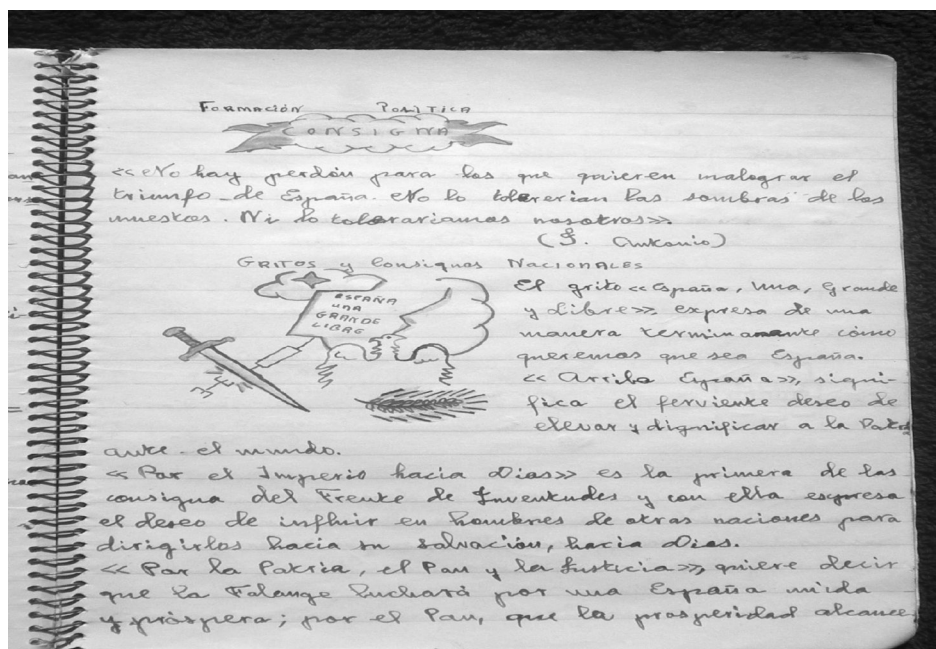 Formación Política
CONSIGNA
«No hay perdón para los que quieren malograr el
triunfo de España. No lo tolererian las sombras de los
muestos. Ni lo tolerariamos nosotros».
(J. Antonio)
GRITOS y Consignas NACIONALES
ESPAÑA
UNA
GRANDE
LIBRE
El grito «España, Una, Grande
y Libre», expresa de una
manera terminante cómo
queremos que sea España.
«Arriba España», signi-
fica el ferviente deseo de
elevar y dignificar a la Patria
ante el mundo.
«Por el Imperio hacia Dios» es la primera de las
consigna del Frente de Juventudes y con ella expresa
el deseo de influir en hombres de otras naciones para
dirigirlos hacia su salvación, hacia Dios.
«Por la Patria, el Pan y la Justicia», quiere decir
que la Falange luchará por una España unida
y próspera; por el Pan, que la prosperidad alcance